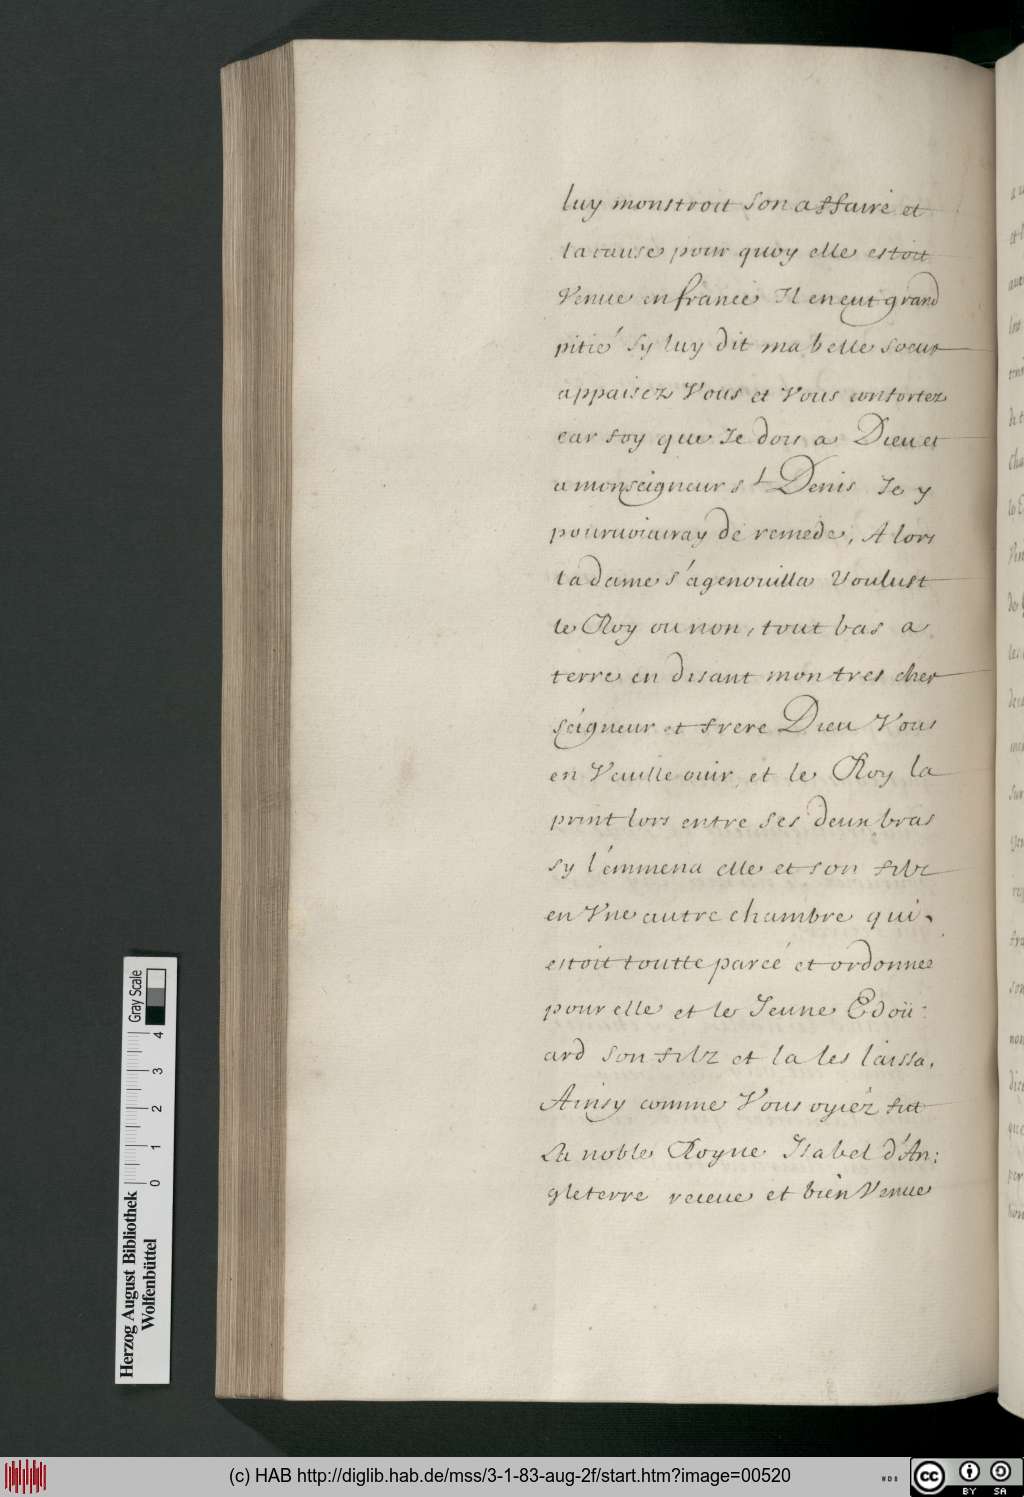 luy monstroit son affaire et
la cause pour quoy elle estoit
Venue en france Il en eut grand
pitié sy luy dit ma belle soeur
appaisez Vous et Vous confortez
car foy que Je dois a Dieu et
a monseigneur st Denis Je y
pourvoieray de remede, Alors
la dame s'agenouilla Voulust
le Roy ou non, tout bas a
terre en disant mon tres cher
seigneur et frere Dieu Vous
en Veuille ouir et le Roy la
print lors entre ses deux bras
sy l'émmena elle et son filz
en Vne autre chambre qui
estoit toutte parée et ordonnee
pour elle et le Jeune Edoü:
ard son filz et la les laissa,
Ainsy comme Vous oyiéz fut
La noble Royne Isabel d'An:
gleterre receue et bien Venue
Gray Scale
0 1 2 3 4
Herzog August Bibliothek
Wolfenbüttel
(c) HAB http://diglib.hab.de/mss/3-1-83-aug-2f/start.htm?image=00520
WDB
cc BY SA